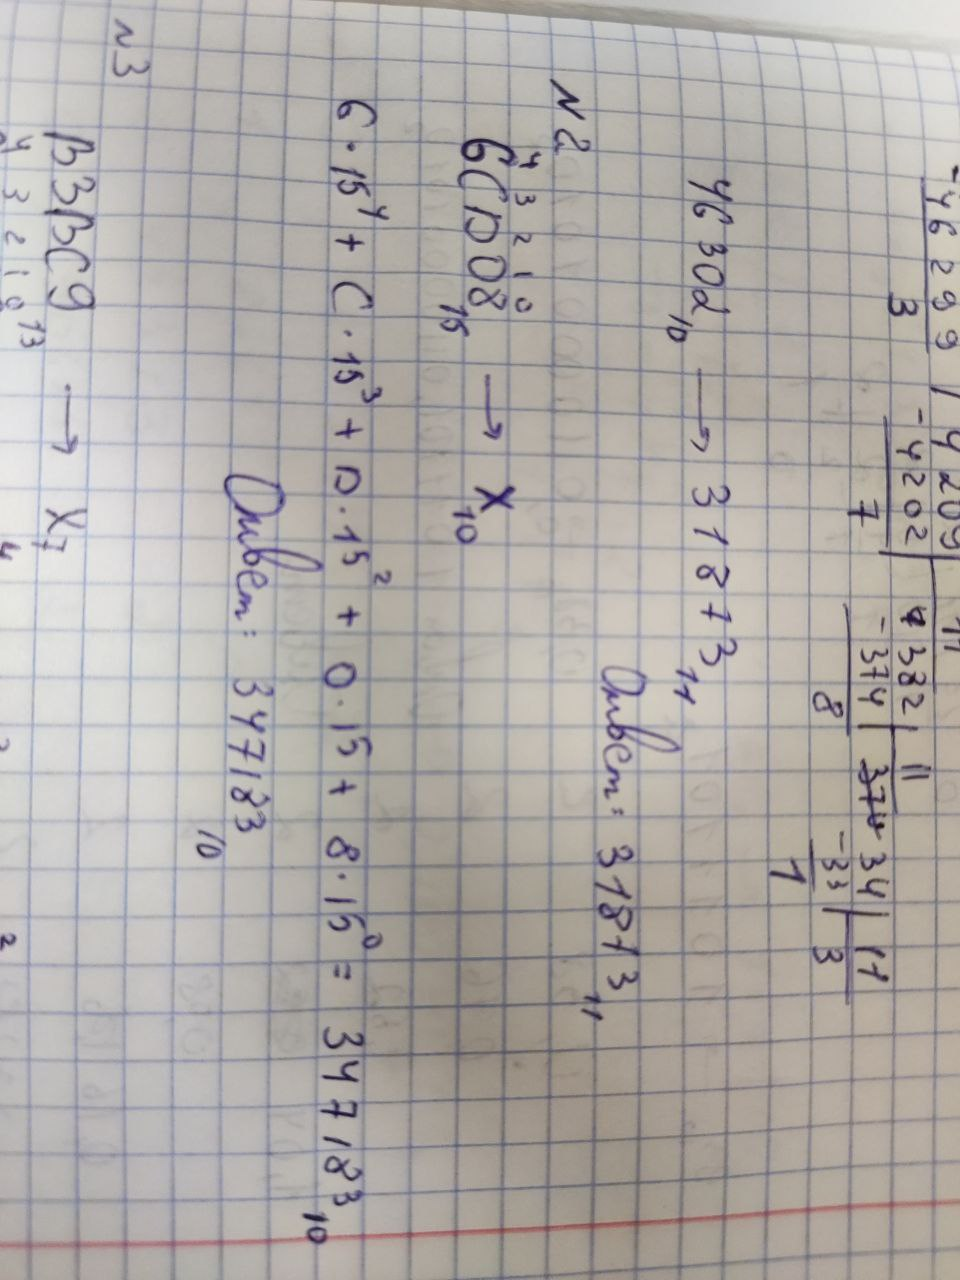 -46299 | 4209 | 11
3 -4202 | 382 | 11
7 -374 | 34 | 11
8 -33 | 3
1
46302₁₀ → 31873₁₁
Ответ: 31873₁₁
N2
4 3 2 1 0
6CD08₁₅ → X₁₀
6·15⁴ + C·15³ + D·15² + 0·15 + 8·15⁰ = 347183₁₀
Ответ: 347183₁₀
N3
B3BC9₁₃ → X₇
4 3 2 1 0